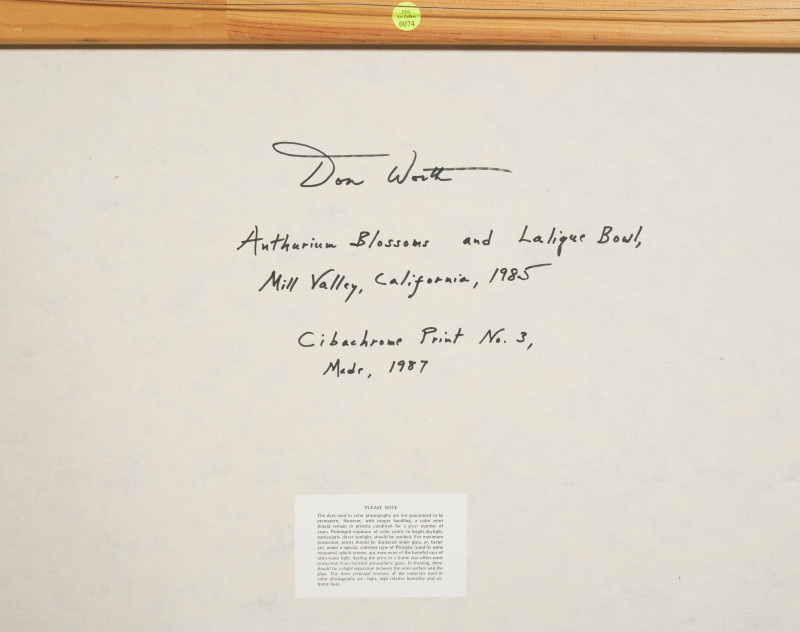 0074
Don Worth
Anthurium Blossoms and Lalique Bowl,
Mill Valley, California, 1985
Cibachrome Print No. 3,
Made, 1987
PLEASE NOTE
The dyes used in color photography are not guaranteed to be
permanent. However, with proper handling, a color print
should remain in pristine condition for a great number of
years. Prolonged exposure of color prints to bright daylight,
particularly direct sunlight, should be avoided. For maximum
protection, prints should be displayed under glass, or, better
yet, under a special, colorless type of Plexiglas (used by some
museums) which screens out even more of the harmful rays of
ultra-violet light. Sealing the print in a frame also offers some
protection from harmful atmospheric gases. In framing, there
should be a slight separation between the print surface and the
glass. The three principal enemies of the materials used in
color photography are: light, high relative humidity and ex-
treme heat.